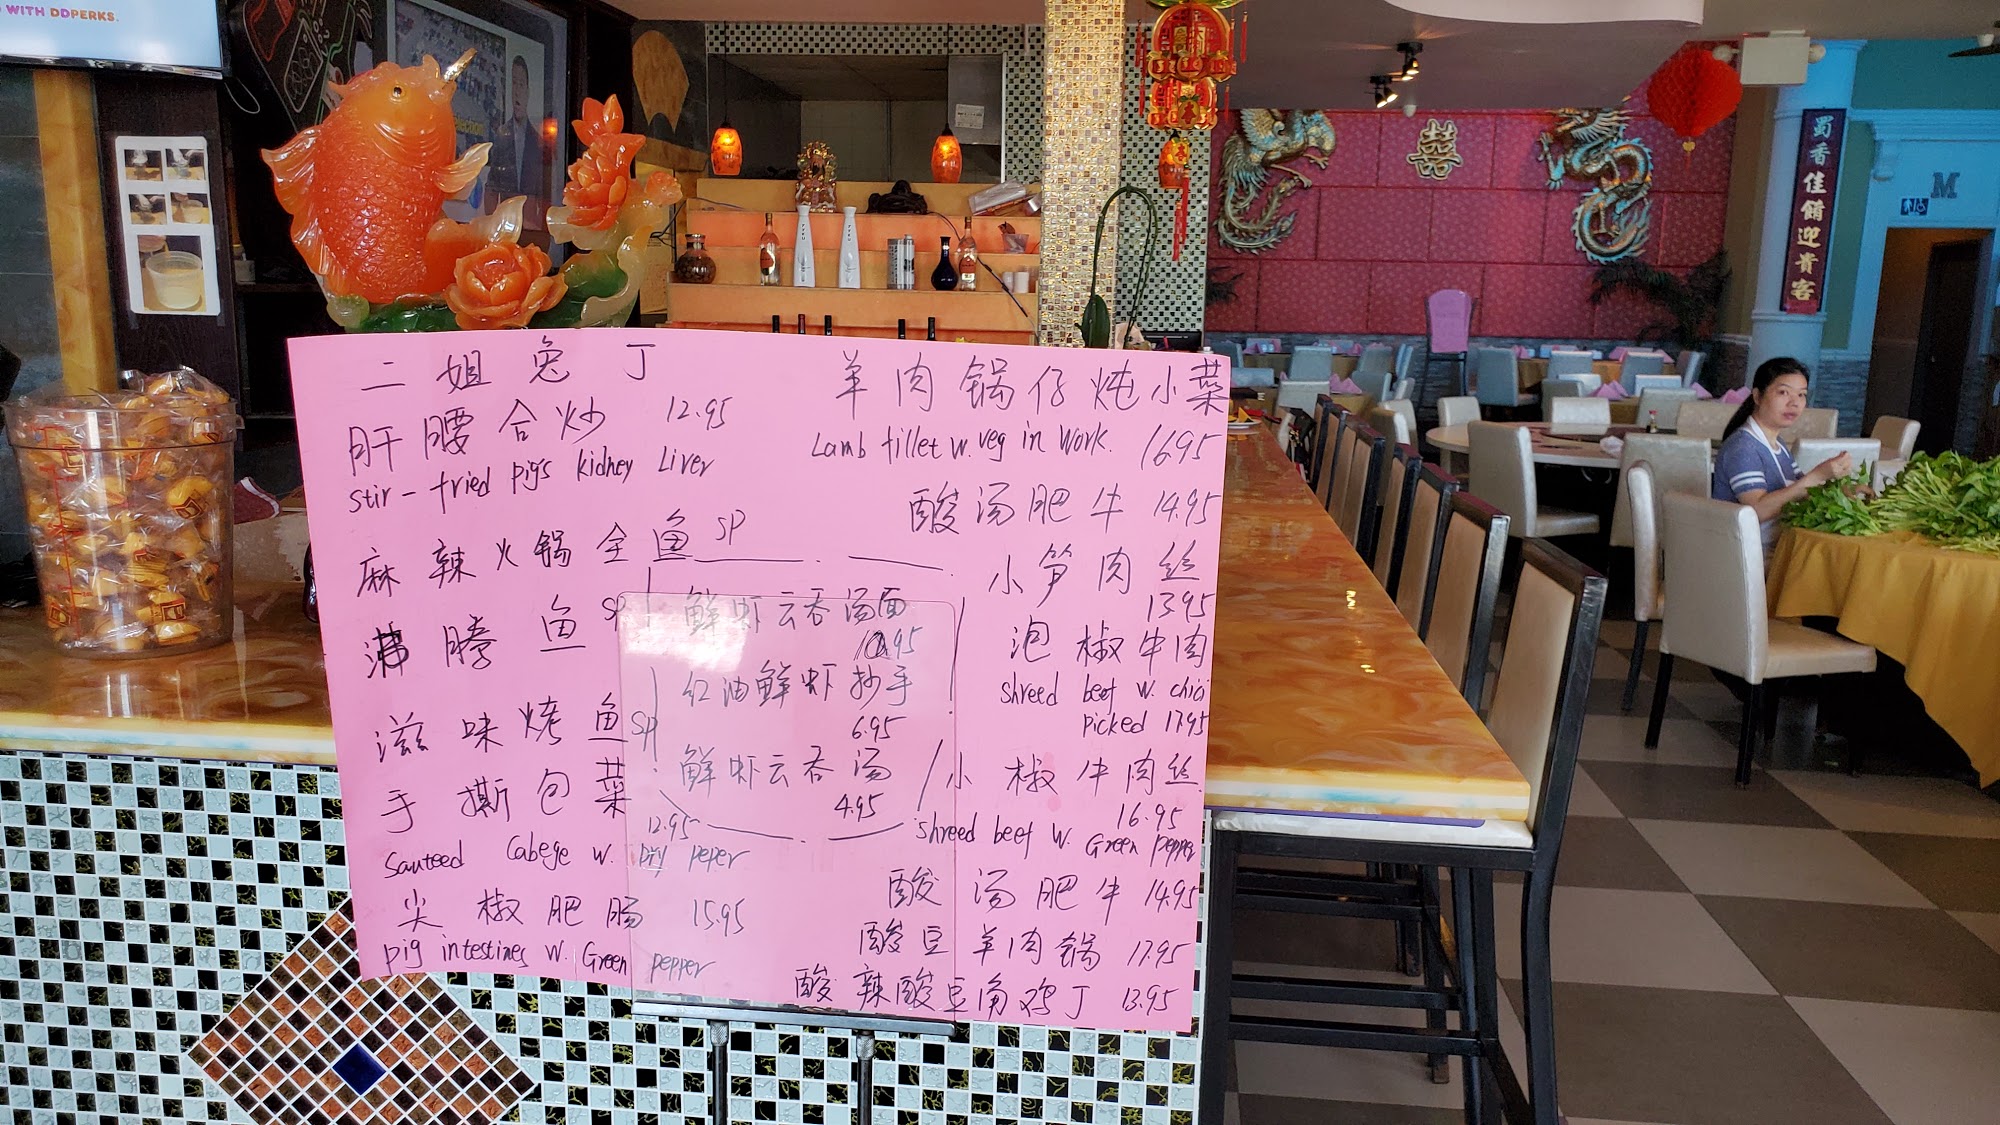 WITH DDPERKS.
二姐兔丁
肝腰合炒 12.95
stir-fried pigs kidney Liver
麻辣火锅全鱼 SP
沸腾鱼 SP
滋味烤鱼 SP
手撕包菜
12.95
sauteed Cabege w. peper
尖椒肥肠 15.95
pig intestines w. Green pepper
鲜虾云吞汤面
红油鲜虾抄手
6.95
鲜虾云吞汤
4.95
羊肉锅仔炖小菜
Lamb fillet w. veg in work. 16.95
酸汤肥牛 14.95
小笋肉丝
13.95
泡椒牛肉
shreed beef w. chici
picked 17.95
小椒牛肉丝
16.95
shreed beef w. Green pepper
酸汤肥牛 14.95
酸豆羊肉锅 17.95
酸辣酸豆角鸡丁 13.95
囍
蜀香佳餚迎貴客
M